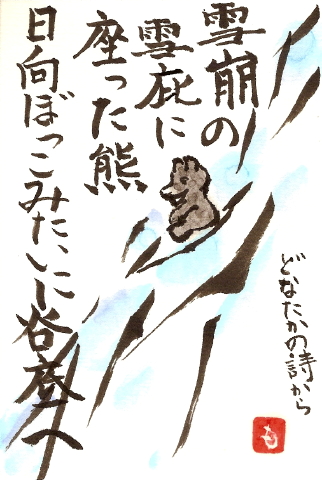 雪崩の
雪庇に
座った熊
日向ぼっこみたいに谷底へ
どなたかの詩から
も